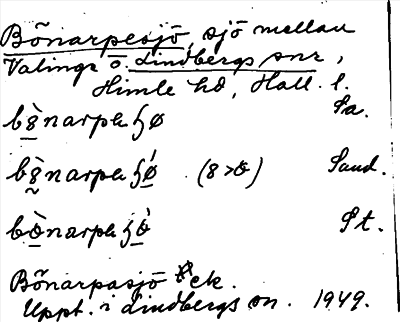 Bönarpesjö, sjö mellan
Valinge o. Lindbergs snr,
Himle hd, Hall. l.
Sa.
Sand.
St.
Bönarpasjö Eck.
Uppt. i Lindbergs sn. 1949.